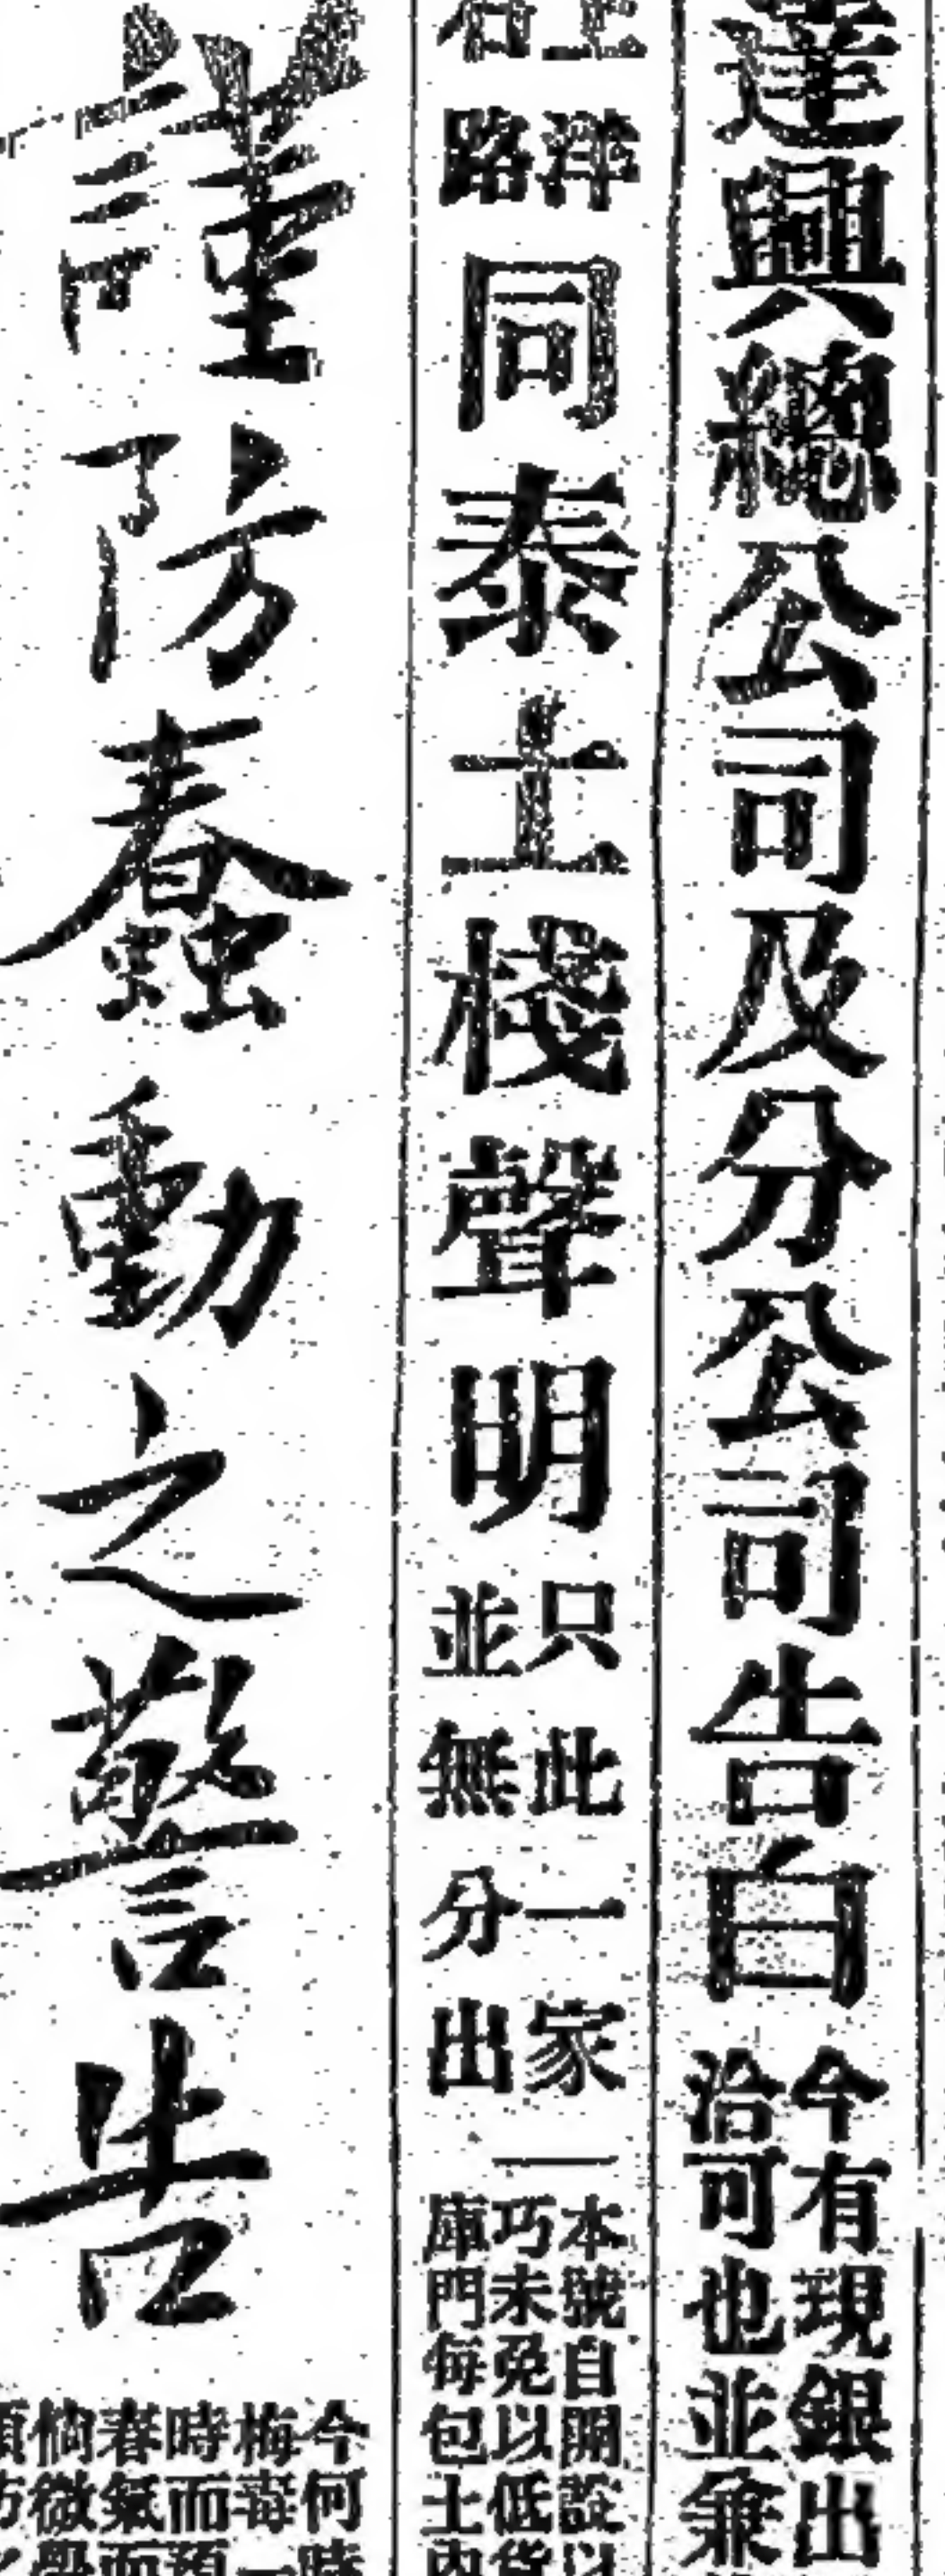 達興總公司及分公司告白
今有現銀出
洽可也並兼
上洋
石路
同泰土棧聲明
只此一家
並無分出
本號自開設以
巧未免以低貨
庫門每包土內
謹防蠢動之警告
今何時
梅毒一
時而預
春氣而
倘微